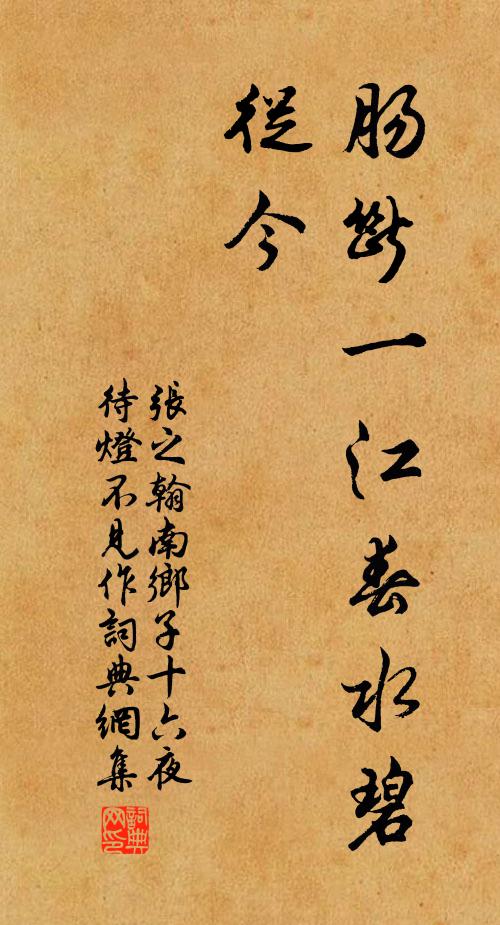 肠斷一江春水碧
從今
張之翰南鄉子十六夜
待燈不見作詞典網集
詞典
网印